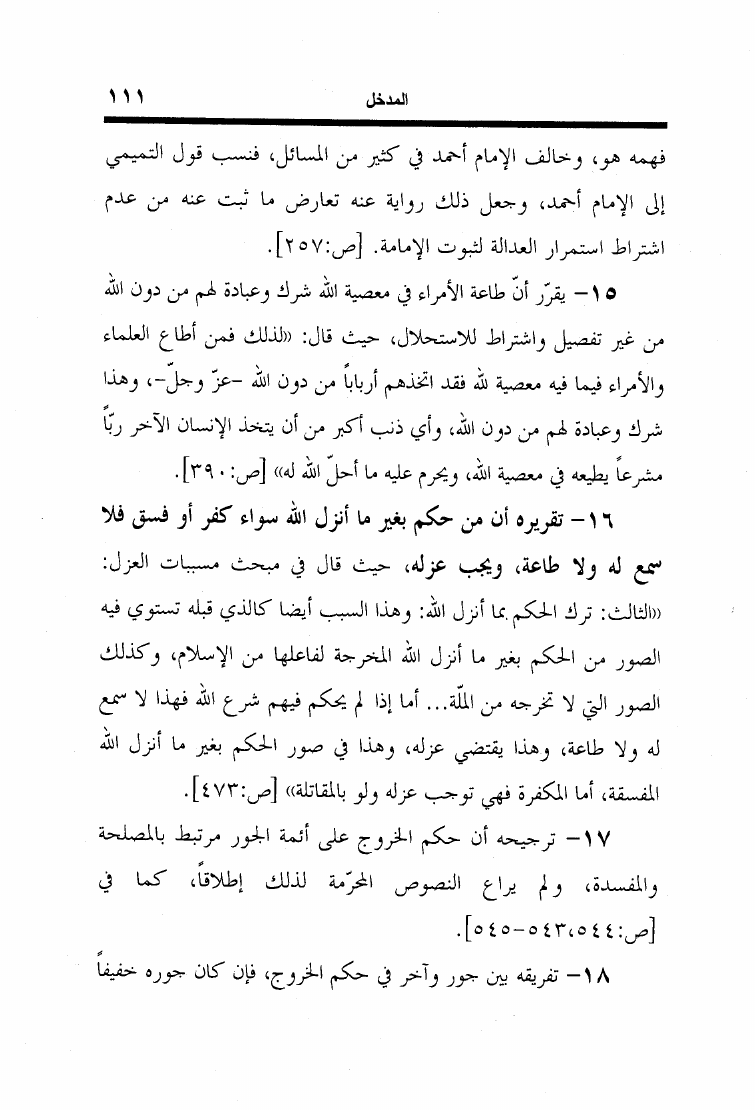 المدخل ١١١
فهمه هو، وخالف الإمام أحمد في كثير من المسائل، فنسب قول التميمي
إلى الإمام أحمد، وجعل ذلك رواية عنه تعارض ما ثبت عنه من عدم
اشتراط استمرار العدالة لثبوت الإمامة. [ص:٢٥٧].
١٥- يقرّر أنّ طاعة الأمراء في معصية الله شرك وعبادة لهم من دون الله
من غير تفصيل واشتراط للاستحلال، حيث قال: ((لذلك فمن أطاع العلماء
والأمراء فيما فيه معصية لله فقد اتخذهم أرباباً من دون الله -عزّ وجلّ-، وهذا
شرك وعبادة لهم من دون الله، وأي ذنب أكبر من أن يتخذ الإنسان الآخر ربّاً
مشرعاً يطيعه في معصية الله، ويحرم عليه ما أحلّ الله له)) [ص:٣٩٠].
١٦- تقريره أن من حكم بغير ما أنزل الله سواء كفر أو فسق فلا
سمع له ولا طاعة، ويجب عزله، حيث قال في مبحث مسببات العزل:
((الثالث: ترك الحكم بما أنزل الله: وهذا السبب أيضا كالذي قبله تستوي فيه
الصور من الحكم بغير ما أنزل الله المخرجة لفاعلها من الإسلام، وكذلك
الصور التي لا تخرجه من الملّة... أما إذا لم يحكم فيهم شرع الله فهذا لا سمع
له ولا طاعة، وهذا يقتضي عزله، وهذا في صور الحكم بغير ما أنزل الله
المفسقة، أما المكفرة فهي توجب عزله ولو بالمقاتلة)) [ص:٤٧٣].
١٧- ترجيحه أن حكم الخروج على أئمة الجور مرتبط بالمصلحة
والمفسدة، ولم يراع النصوص المحرّمة لذلك إطلاقاً، كما في
[ص:٥٤٣،٥٤٤-٥٤٥].
١٨- تفريقه بين جور وآخر في حكم الخروج، فإن كان جوره خفيفاً